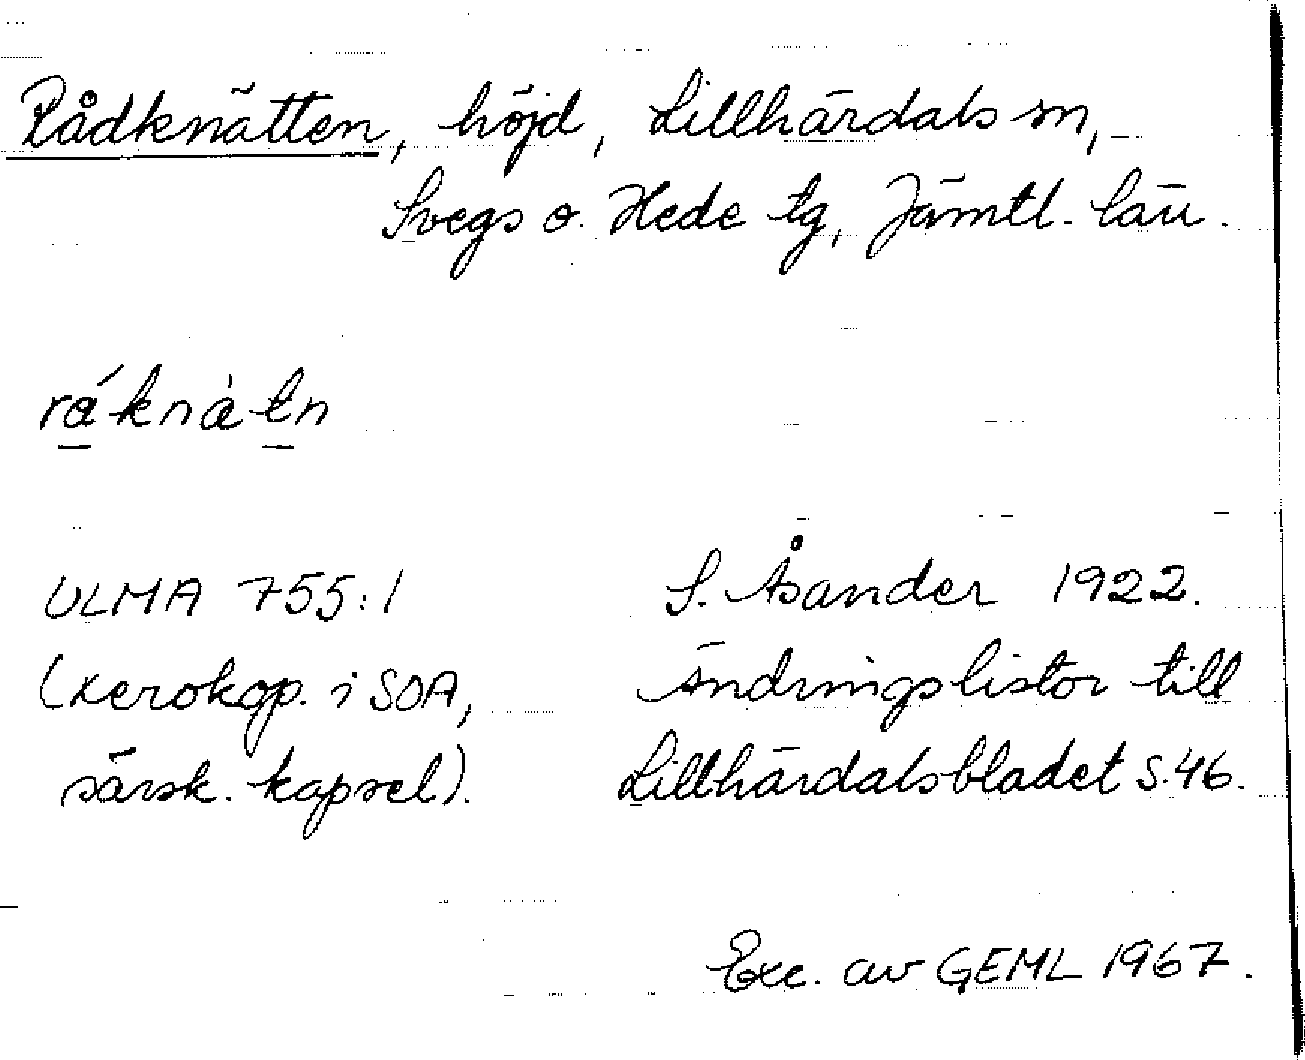 Rådknätten, höjd, Lillhärdals sn,
Svegs o. Hede tg, Jämtl. län.
rá knà tn
ULMA 755:1 S. Åsander 1922.
(xerokop. i SOA, Ändringslistor till
särsk. kapsel). Lillhärdalsbladet s.46.
Exc. av GEML 1967.